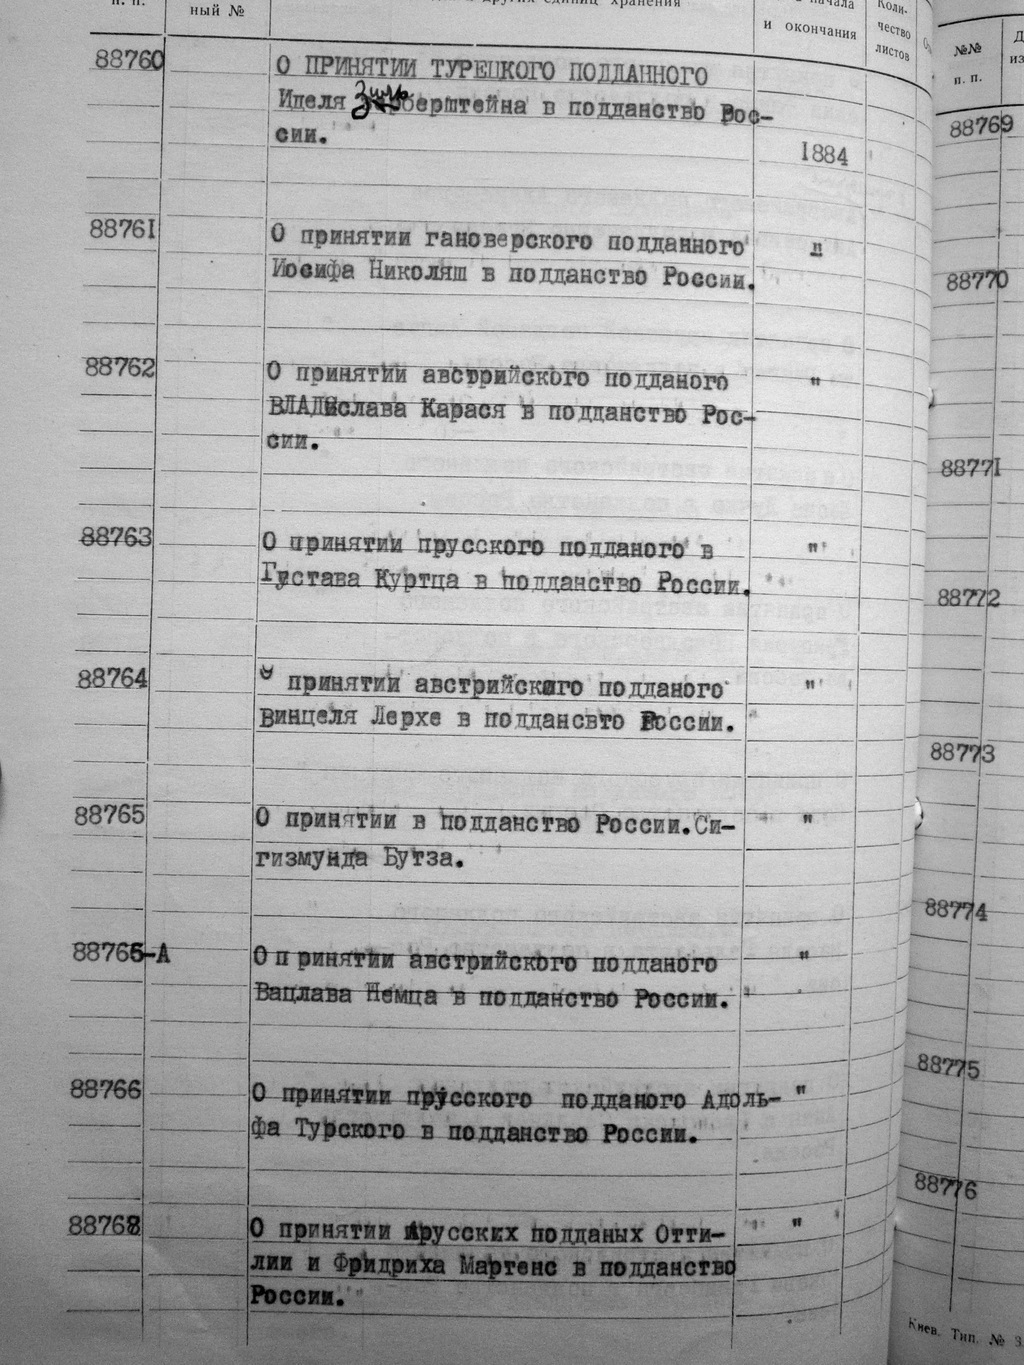 п. п.
ный №
других единиц хранения
начала
и окончания
Коли-
чество
листов
88760
О ПРИНЯТИИ ТУРЕЦКОГО ПОДДАННОГО
Иделя Зильберштейна в подданство Рос-
сии.
1884
88761
О принятии гановерского подданного
Иосифа Николяш в подданство России.
"
88762
О принятии австрийского подданого
ВЛАДислава Карася в подданство Рос-
сии.
"
88763
О принятии прусского подданого в
Густава Куртца в подданство России.
"
88764
принятии австрийского подданого
Винцеля Лерхе в поддансвто России.
"
88765
О принятии в подданство России.Си-
гизмунда Бутза.
"
88765-А
О п ринятии австрийского подданого
Вацлава Немца в подданство России.
"
88766
О принятии прусского подданого Адоль-
фа Турского в подданство России.
"
88768
О принятии прусских подданых Отти-
лии и Фридриха Мартенс в подданство
России.
"
№№
п. п.
Д
из
88769
88770
88771
88772
88773
88774
88775
88776
Киев. Тип. № 3